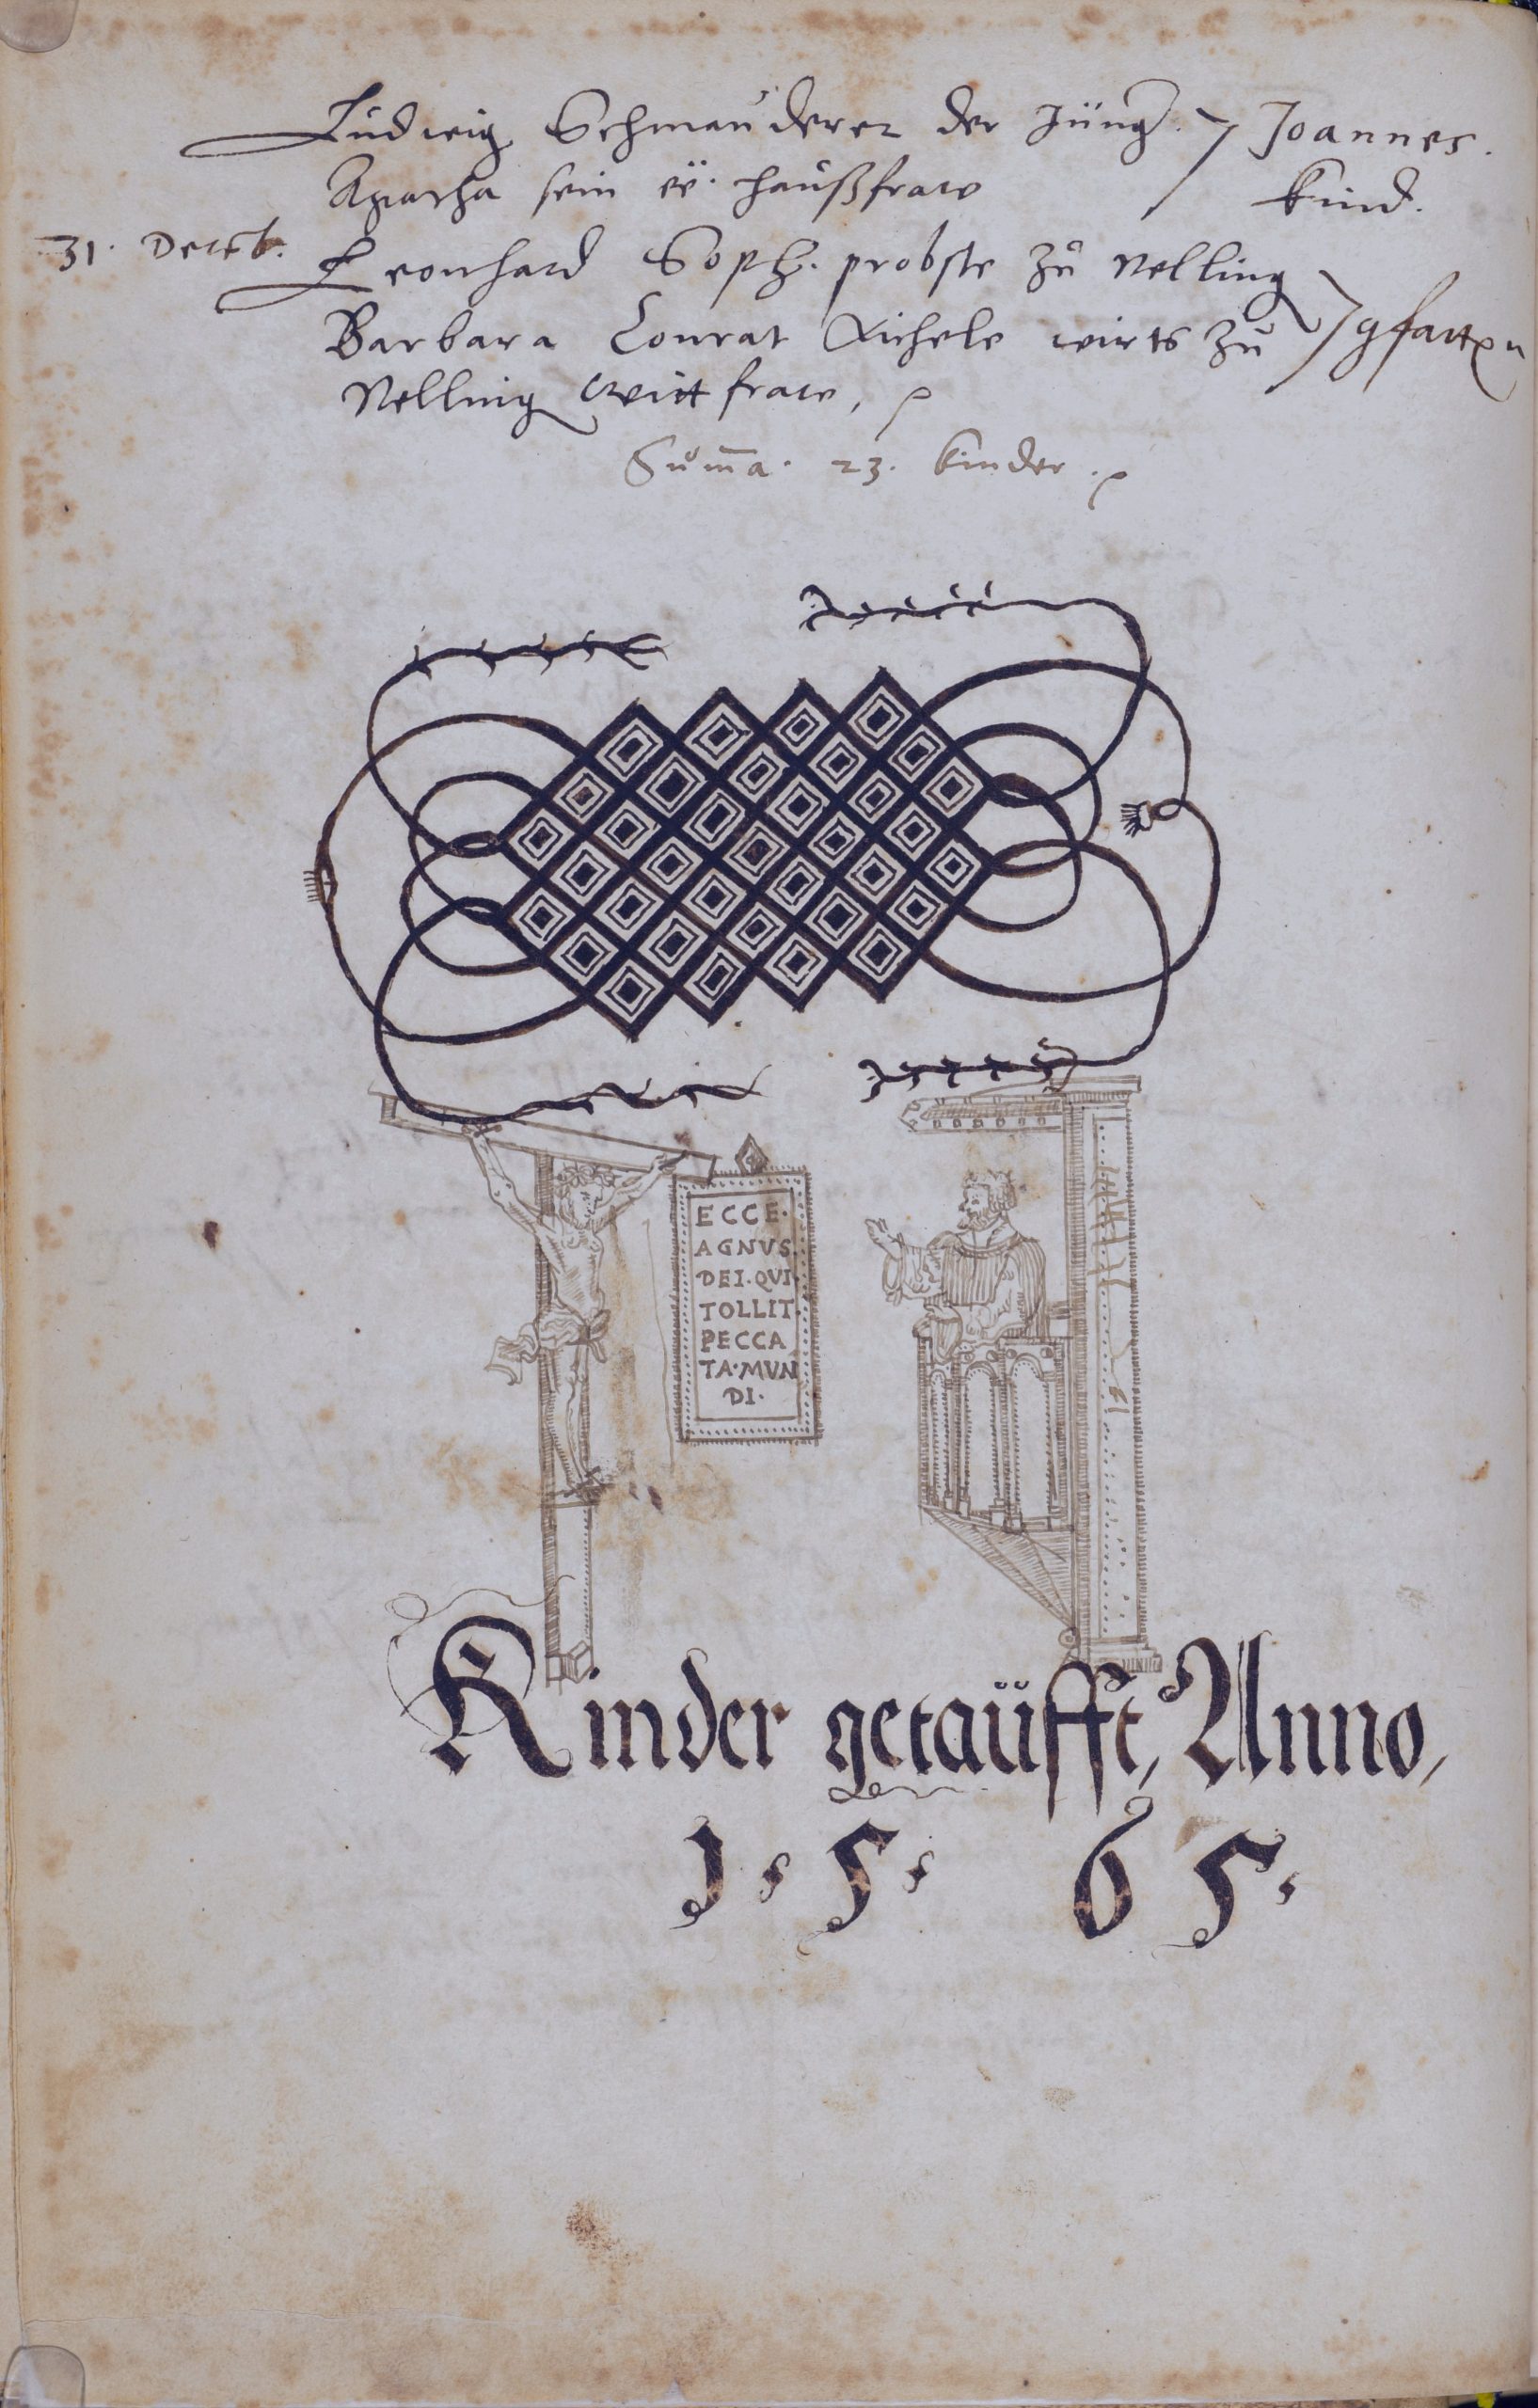 Ludwig Schmauderer der Jüng. Joannes.
Agatha sein ee. haußfraw kind.
31. Decēb. Leonhard Soph. probste zů Nelling
Barbara Conrat Richele wirts zů gfattern
Nelling wittfraw,
Sūma. 23. kinder.
ECCE.
AGNVS.
DEI. QVI.
TOLLIT.
PECCA
TA. MVN
DI.
Kinder getaüfft, Anno,
1. 5. 6 5.